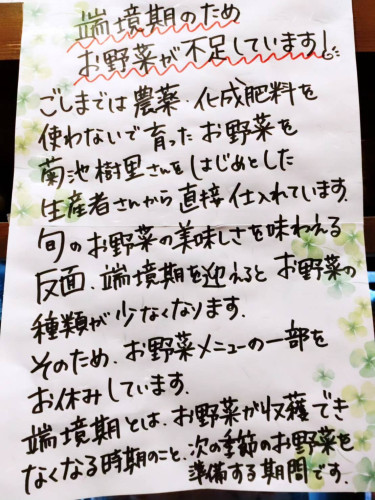 端境期のため
お野菜が不足しています!
ごしまでは農薬・化成肥料を
使わないで育ったお野菜を
菊池樹里さんをはじめとした
生産者さんから直接仕入れています.
旬のお野菜の美味しさを味わえる
反面、端境期を迎えるとお野菜の
種類が少なくなります.
そのため、お野菜メニューの一部を
お休みしています.
端境期とは、お野菜が収穫でき
なくなる時期のこと、次の季節のお野菜を
準備する期間です.